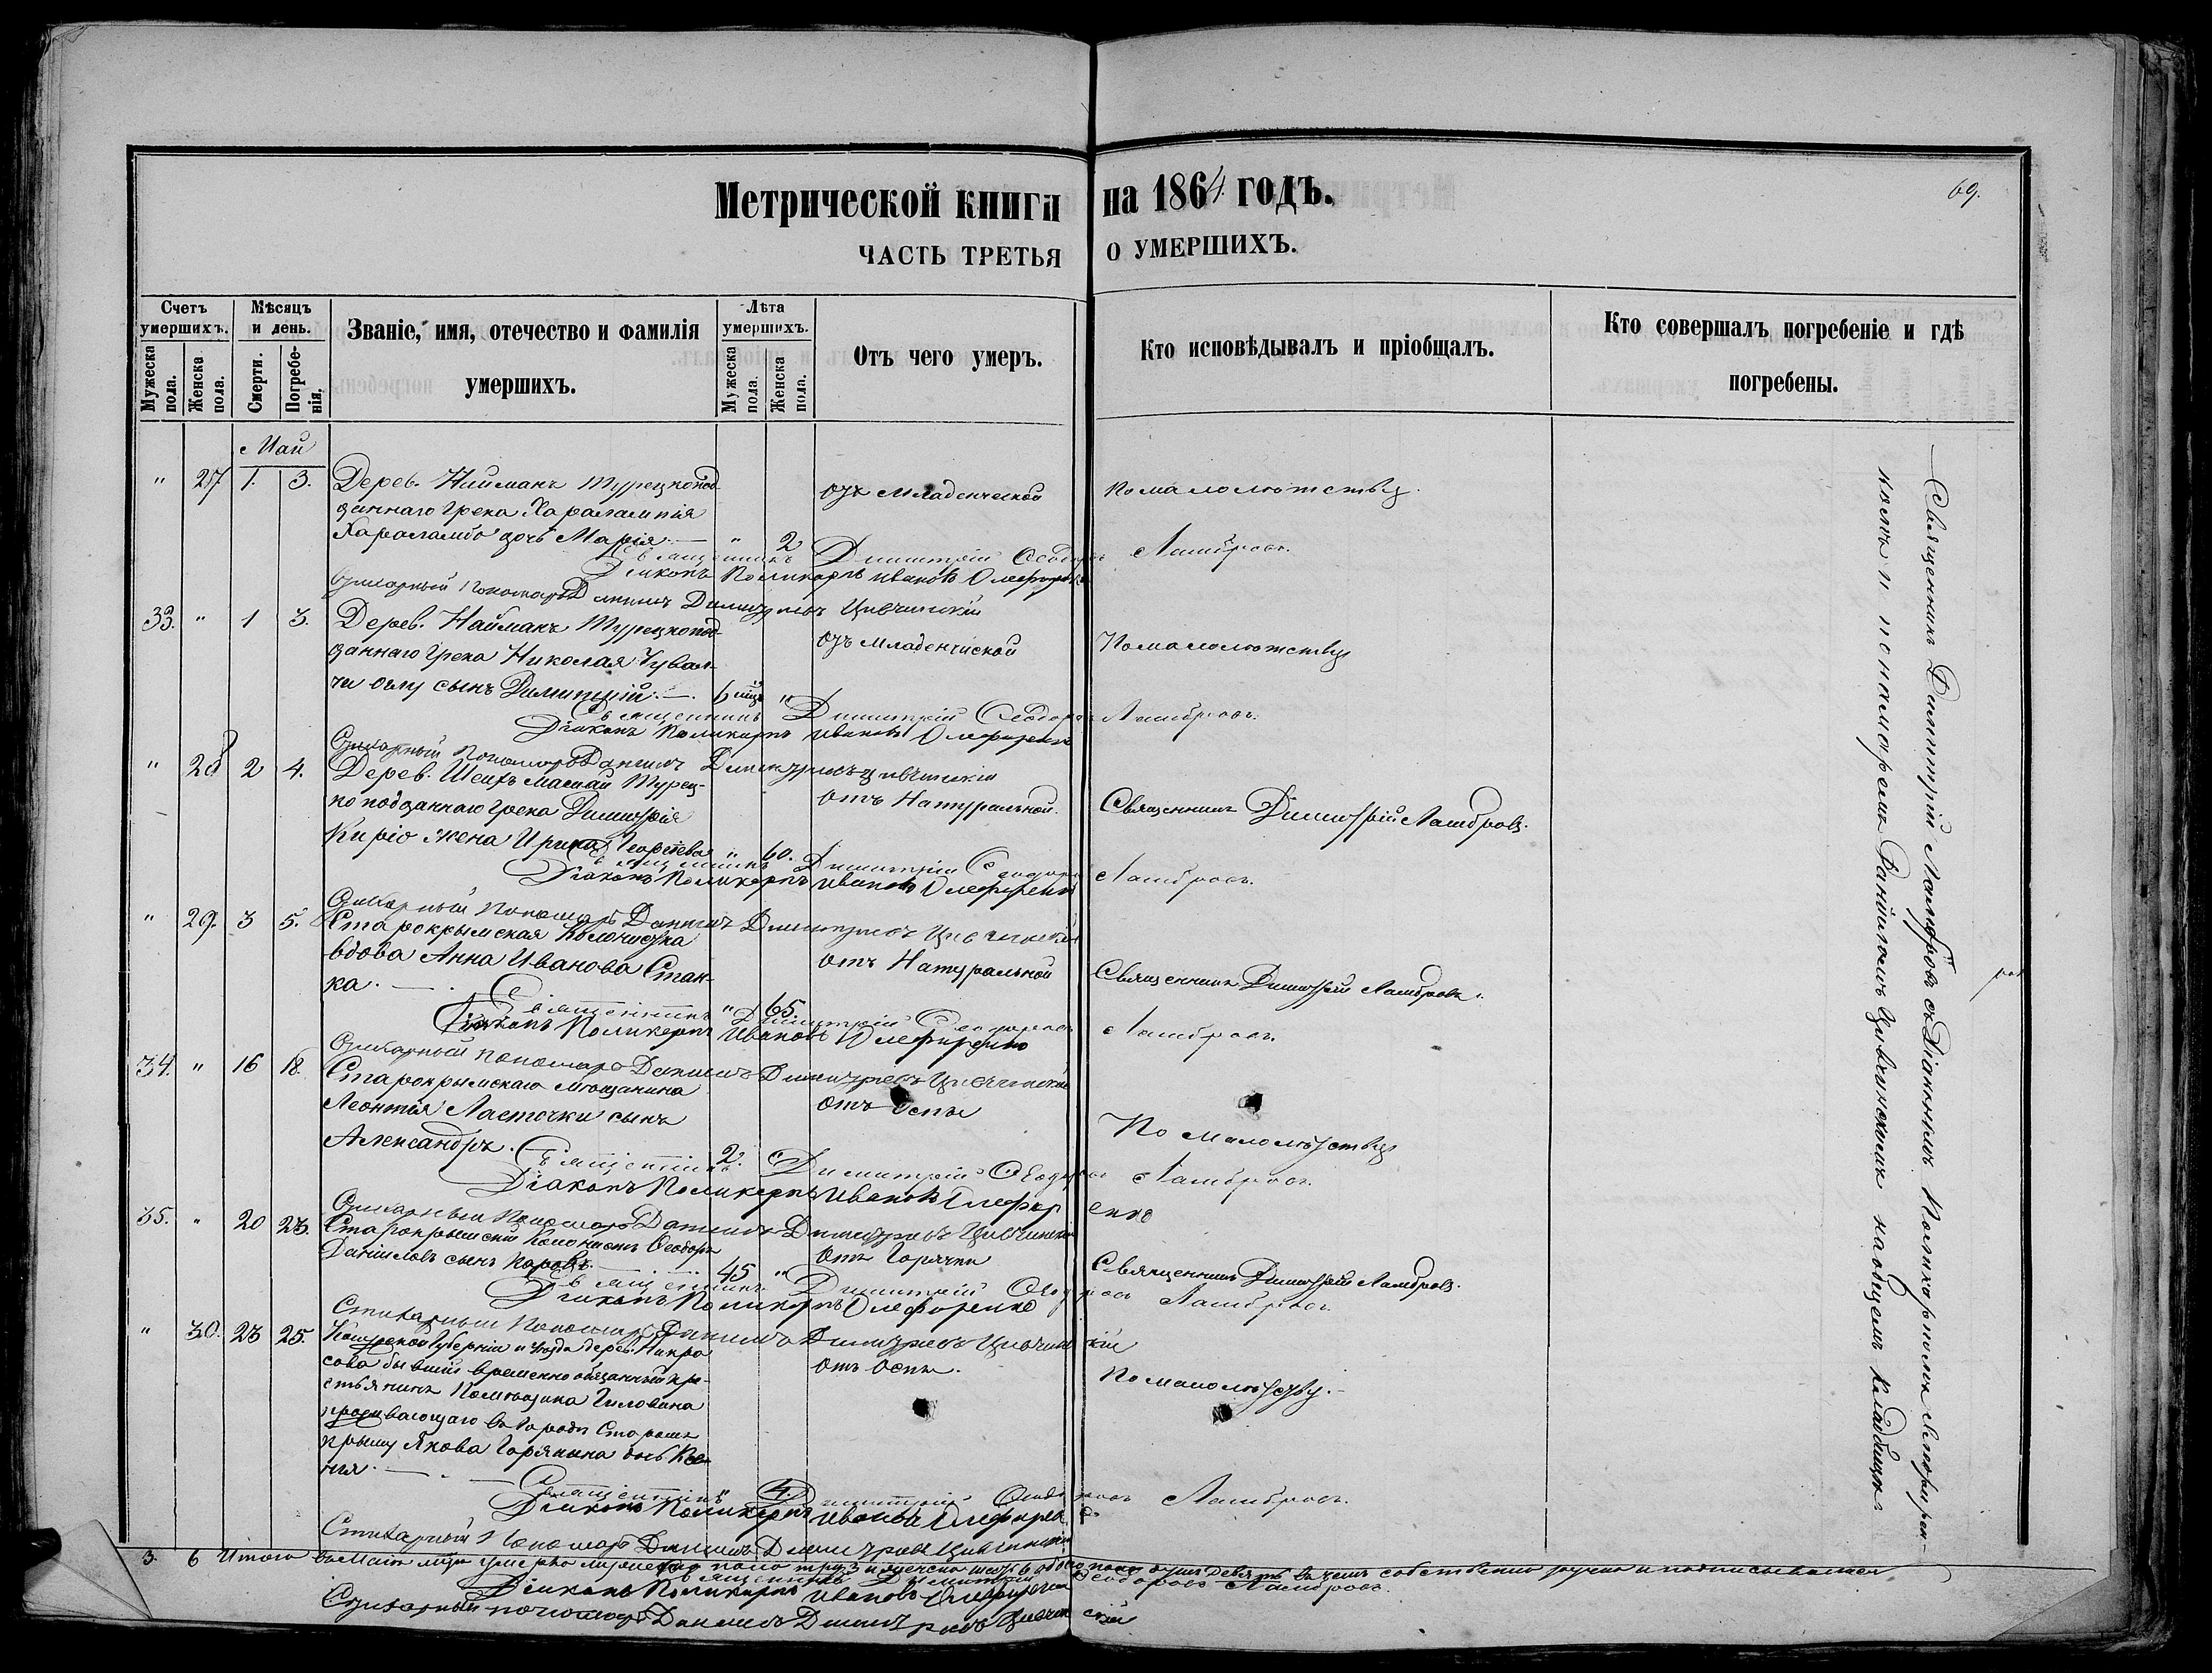 Метрической книги на 1864 годъ.
69.
ЧАСТЬ ТРЕТЬЯ О УМЕРШИХЪ.
Счетъ умершихъ.
Мужеска пола.
Женска пола.
Мѣсяцъ и день.
Смерти.
Погребенія.
Званіе, имя, отечество и фамилія
умершихъ.
Лѣта умершихъ.
Мужеска пола.
Женска пола.
Отъ чего умеръ.
Кто исповѣдывалъ и пріобщалъ.
Кто совершалъ погребеніе и гдѣ
погребены.
Май
" 27 1. 3. Дерев. Найманъ Турецкопод-
даннаго Грека Харалампія
Хараламбо дочь Марія. — " 2
отъ младенческой
По малолѣтству.
Священникъ Димитрій Ѳеодоровъ Ламбровъ.
Діаконъ Поликарпъ Ивановъ Олефиренко
Стихарный Пономарь Даниилъ Димитріевъ Цивчинскій
33. " 1 3. Дерев. Найманъ Турецкопод-
даннаго Грека Николая Чувал-
чи оглу сынъ Димитрій. — 6 мцъ "
отъ младенческой
По малолѣтству
Священникъ Димитрій Ѳеодоровъ Ламбровъ.
Діаконъ Поликарпъ Ивановъ Олефиренко
Стихарный Пономарь Даниилъ Димитріевъ Цивчинскій
" 28 2 4. Дерев. Шеихъ Мамай Турец-
ко подданнаго Грека Димитрія
Киріо жена Ирина Георгіева " 60.
Отъ Натуральной.
Священникъ Димитрій Ламбровъ.
Священникъ Димитрій Ѳеодоровъ Ламбровъ.
Діаконъ Поликарпъ Ивановъ Олефиренко
Стихарный Пономарь Даниилъ Димитріевъ Цивчинскій
" 29. 3 5. Старокрымская Колонистка
вдова Анна Иванова Стан-
ка. — " 65.
Отъ Натуральной
Священникъ Димитрій Ламбровъ.
Священникъ Димитрій Ѳеодоровъ Ламбровъ.
Діаконъ Поликарпъ Ивановъ Олефиренко
Стихарный Пономарь Даниилъ Димитріевъ Цивчинскій
34. " 16 18. Старокрымскаго Мѣщанина
Леонтія Ласточки сынъ
Александръ. — 2.
Отъ оспы
По малолѣтству
Священникъ Димитрій Ѳеодоровъ Ламбровъ.
Діаконъ Поликарпъ Ивановъ Олефиренко
Стихарный Пономарь Даниилъ Димитріевъ Цивчинскій
35. " 20 23. Старокрымскій Колонистъ Ѳеодоръ
Даніиловъ сынъ 45 "
Отъ Горячки
Священникъ Димитрій Ламбровъ.
Священникъ Димитрій Ѳеодоровъ Ламбровъ.
Діаконъ Поликарпъ Олефиренко
Стихарный Пономарь Даниилъ Димитріевъ Цивчинскій
" 30. 23 25. Губерніи и уѣзда дерев.
сова бывшій временно обязанный кре-
стьянинъ Помѣщика
проживающаго въ Городѣ Старомъ
крыму Якова дочь Ксе-
нія. — " 4.
Отъ Оспы.
По малолѣтству. —
Священникъ Димитрій Ѳеодоровъ Ламбровъ.
Діаконъ Поликарпъ Ивановъ Олефиренко
Стихарный Пономарь Даниилъ Димитріевъ Цивчинскій
Священникъ Димитрій Ламбровъ съ Діакономъ Поликарпомъ Олефирен-
комъ и пономаремъ Даніиломъ Цивчинскимъ на общемъ кладбищѣ.
3. 6 Итого въ Маѣ мцѣ умерло мужеска пола три 3 и женска шесть 6 обоего пола душъ девять въ чемъ собственно ручно и подписываемся
Священникъ Димитрій Ѳеодоровъ Ламбровъ.
Діаконъ Поликарпъ Ивановъ Олефиренко
Стихарный пономарь Даниилъ Димитріевъ Цивчинскій